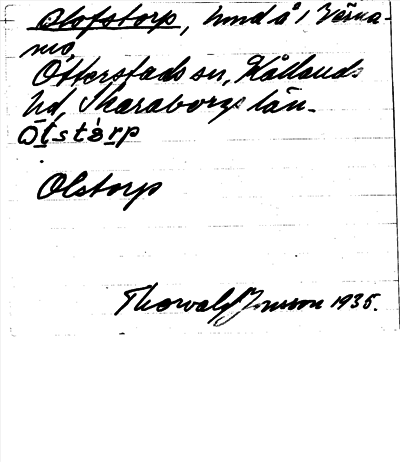 Olofstorp, hmd å 1 Värna-
mo,
Otterstads sn, Kållands
hd, Skaraborgs län.
Olstorp
Thorvald Jonsson 1935.